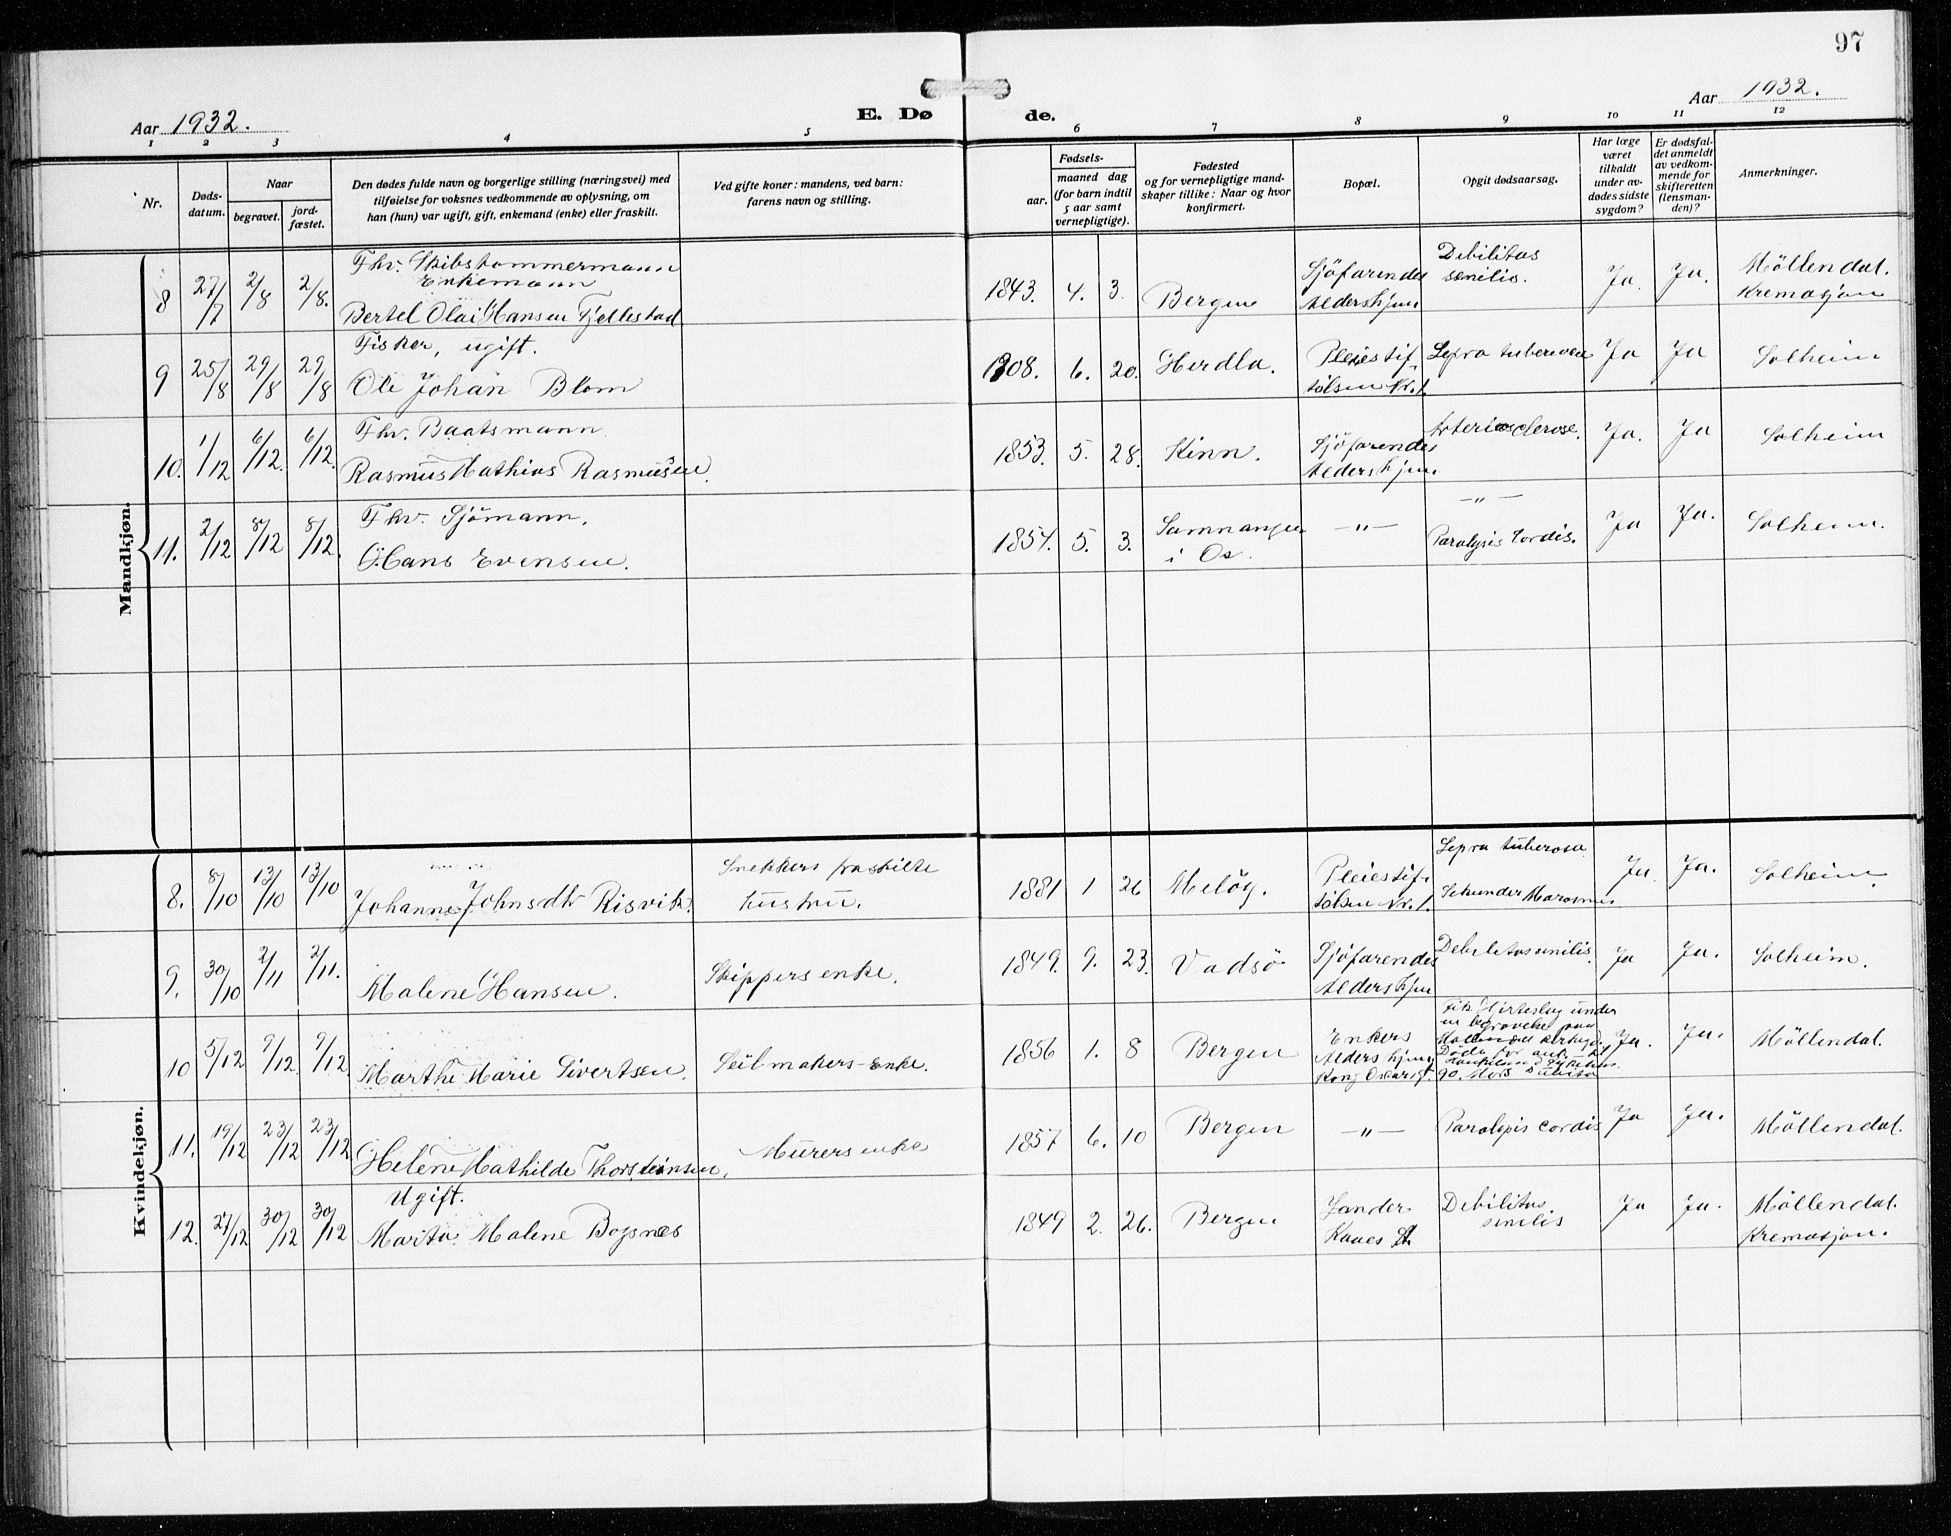 97
Aar 1932.
E. Dø de.
Aar 1932.
1 2 3 4 5 6 7 8 9 10 11 12
Nr.
Døds-
datum.
Naar
begravet.
jord-
fæstet.
Den dødes fulde navn og borgerlige stilling (næringsvei) med
tilføielse for voksnes vedkommende av oplysning, om
han (hun) var ugift, gift, enkemand (enke) eller fraskilt.
Ved gifte koner: mandens, ved barn:
farens navn og stilling.
Fødsels-
aar.
maaned dag
(for barn indtil
5 aar samt
vernepligtige).
Fødested
og for vernepligtige mand-
skaper tillike: Naar og hvor
konfirmert.
Bopæl.
Opgit dødsaarsag.
Har læge
været
tilkaldt
under av-
dødes sidste
sygdom?
Er dødsfal-
det anmeldt
av vedkom-
mende for
skifteretten
(lensman-
den)?
Anmerkninger.
Mandkjøn.
8 27/7 2/8 2/8.
Fhv. Skibstømmermann
Enkemann
Bertel Olai Hansen Fjellestad
1843. 4. 3. Bergen
Sjøfarendes
Aldershjem
Debilitas
senilis.
Ja. Ja.
Møllendal.
Kremasjon
9 25/8 29/8 29/8
Fisker, ugift.
Ole Johan Blom
1908. 6. 20. Herdla.
Pleiestif-
telsen Nr. 1.
Lepra tuberosa
Ja Ja Solheim
10. 1/12 6/12. 6/12.
Fhv. Baatsmann
Rasmus Mathias Rasmussen.
1853. 5. 28. Kinn.
Sjøfarendes
Aldershjem.
Arteriosclerose.
Ja. Ja Solheim
11. 2/12 8/12 8/12.
Fhv. Sjømann.
Hans Evensen.
1854. 5. 3.
Samnanger
i Os.
—"—
—"—
Paralysis Cordis.
Ja Ja. Solheim.
Kvindekjøn.
8. 8/10 13/10 13/10
Johanne Johnsdtr Risvik.
Snekkers fraskilte
hustru.
1881 1 26 Meløy.
Pleiestif-
telsen Nr. 1.
Lepra tuberosa
Sekunder Marasmus
Ja. Ja. Solheim.
9. 30/10 2/11 2/11.
Malene Hansen.
Skippers enke.
1849. 9. 23. Vadsø
Sjøfarendes
Aldershjem
Debilitas senilis.
Ja Ja. Solheim.
10 5/12 9/12. 9/12
Marthe Marie Sivertsen.
Seilmakers-Enke.
1856 1. 8 Bergen
Enkers
Aldershjem
Kong Oscarsgt.
Fik Hjerteslag under
en begravelse paa
Møllendal
Døde før ank. til
Mors subita
Ja. Ja. Møllendal.
11. 19/12 23/12 23/12
Helene Mathilde Thorsteinsen.
Murers enke
1857 6. 10 Bergen —"—
Paralysis cordis
Ja Ja. Møllendal.
12. 27/12 30/12 30/12
Ugift.
Marta Malene Bogsnes
1849 2. 26. Bergen
Sander
Kaaes St
Debilitas.
senilis
Ja Ja.
Møllendal.
Kremasjon.